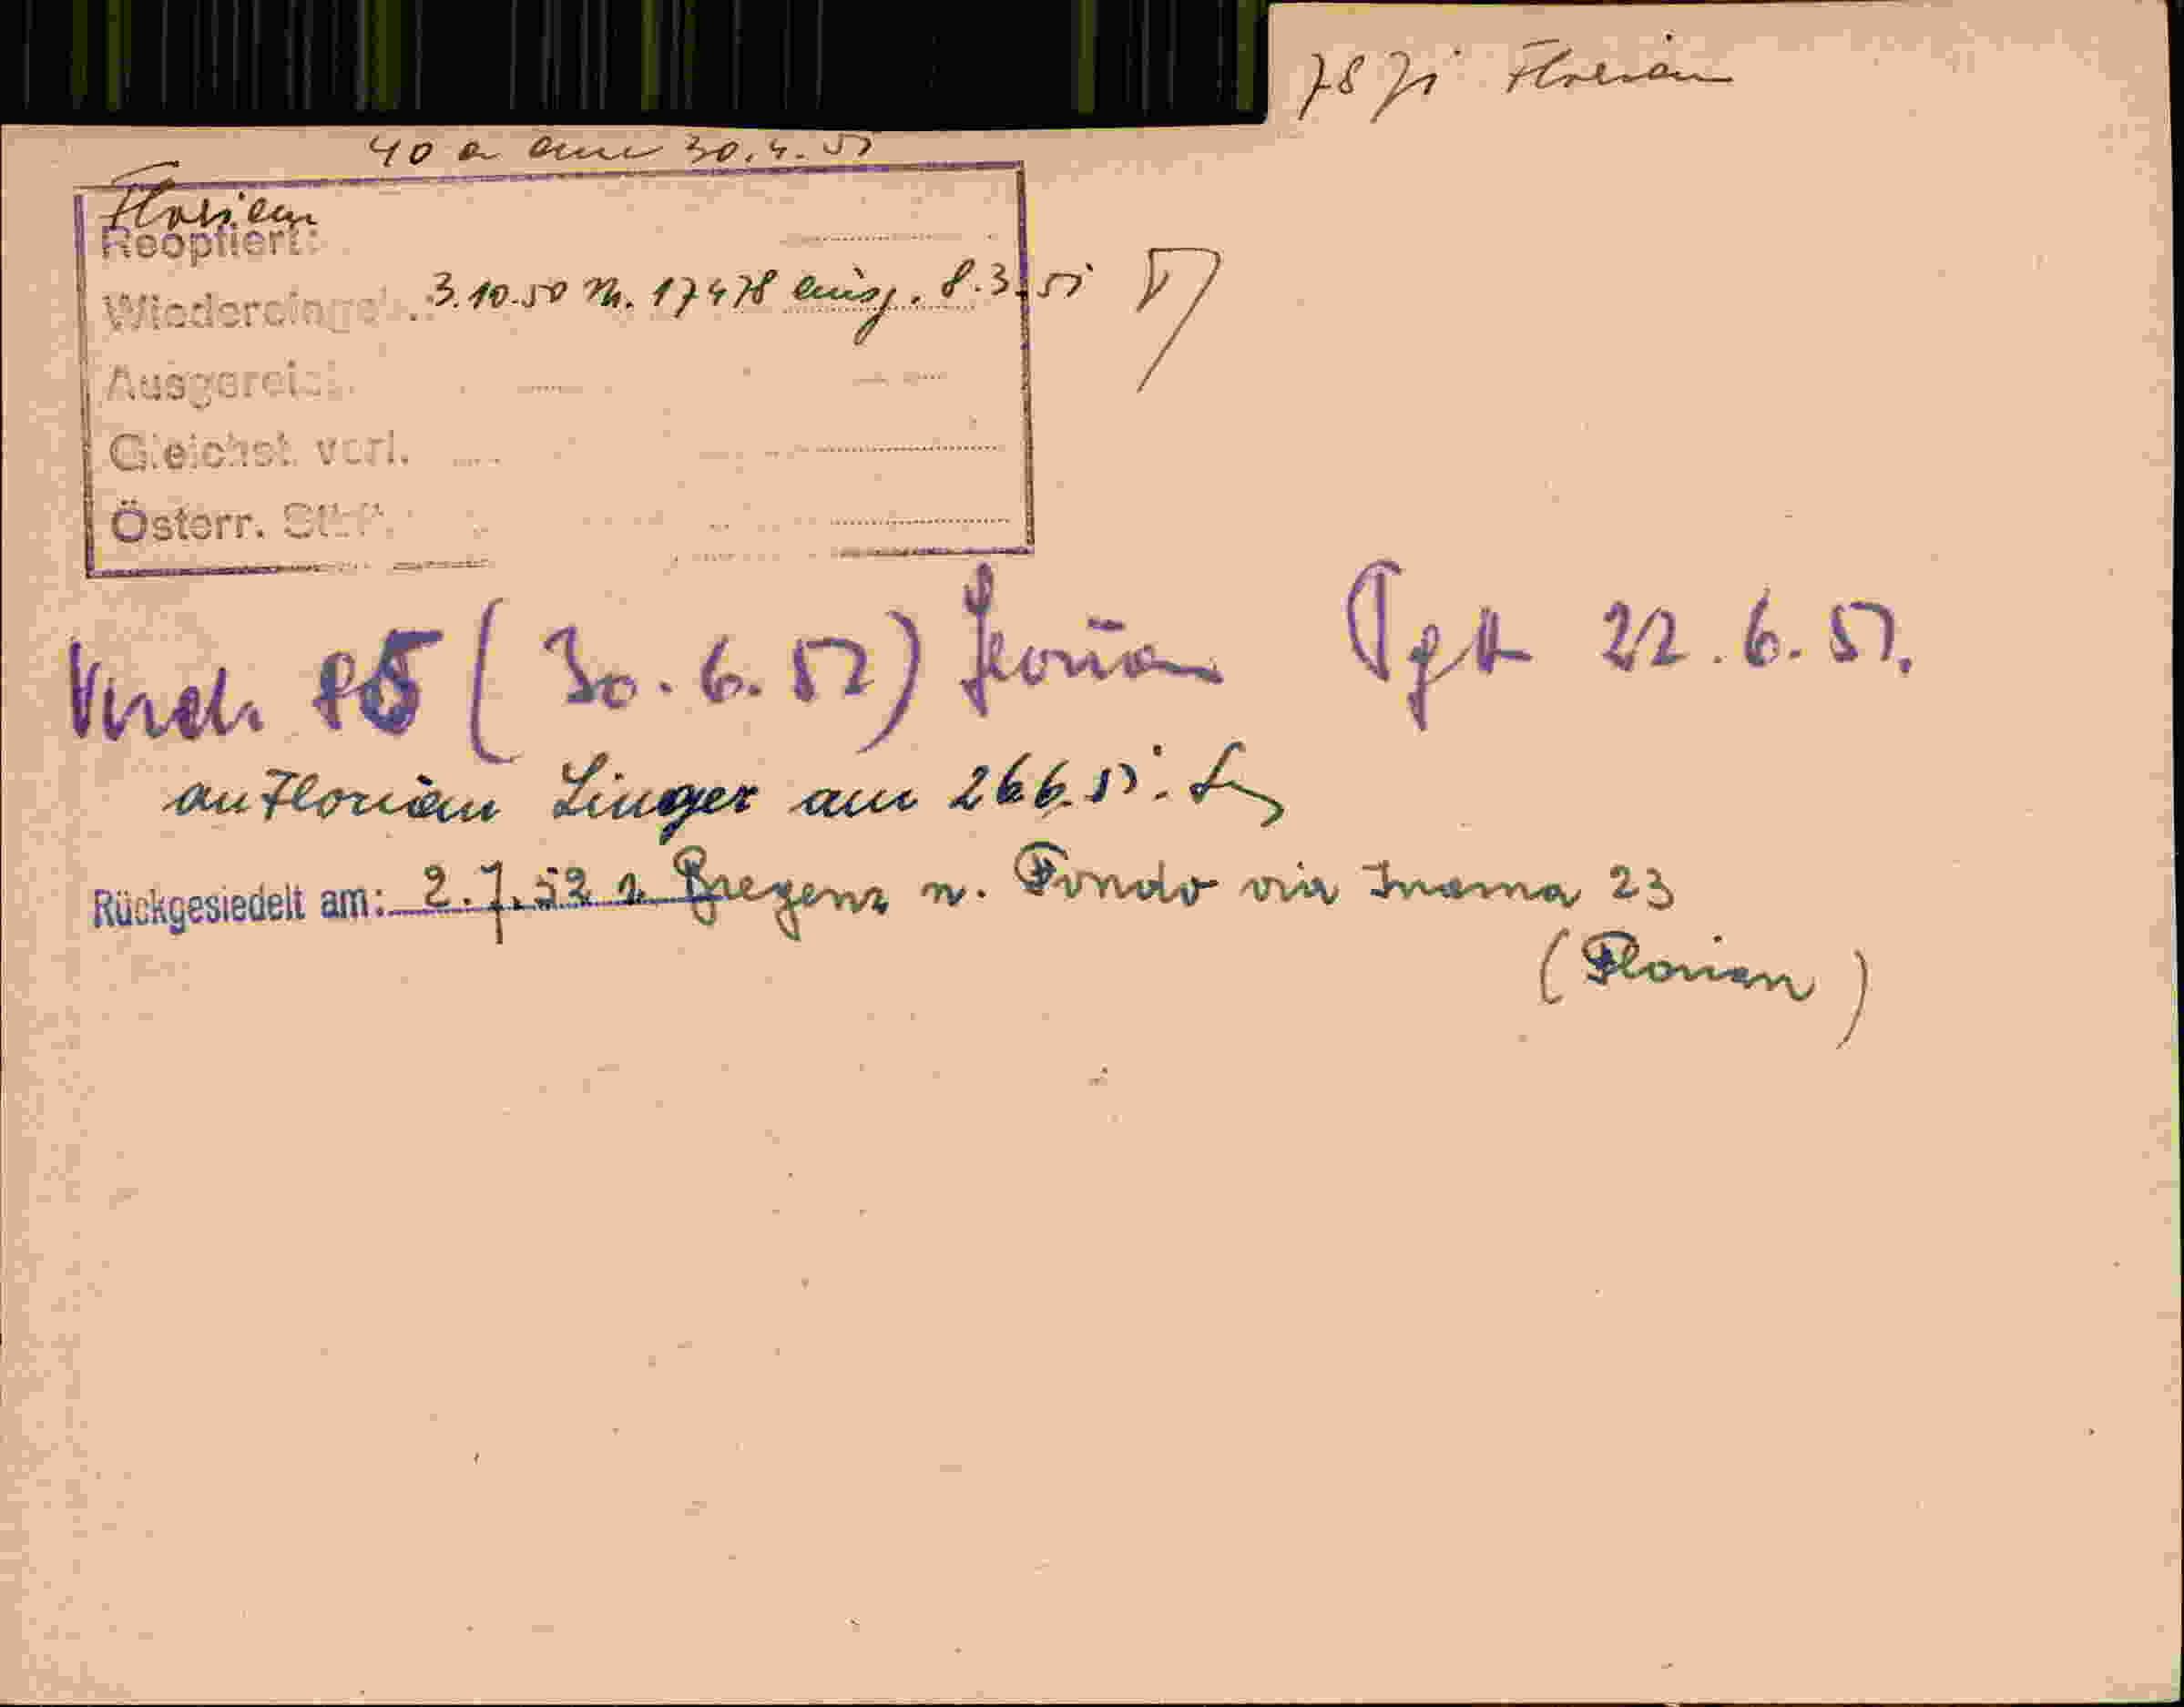 78 Ji Florian
40 a am 30.4.51
Florian
Reoptiert:
Wiedereingeb. 3.10.50 Nr. 17478 eing. 8.3.51
Ausgereist
Gleichst. vorl.
Österr. St.P.
85 (30.6.52) Florian 22.6.51.
an Florian Linger am 26.6.51.
Rückgesiedelt am: 2.7.52 v. Bregenz n. Fondo via Inama 23
(Florian)